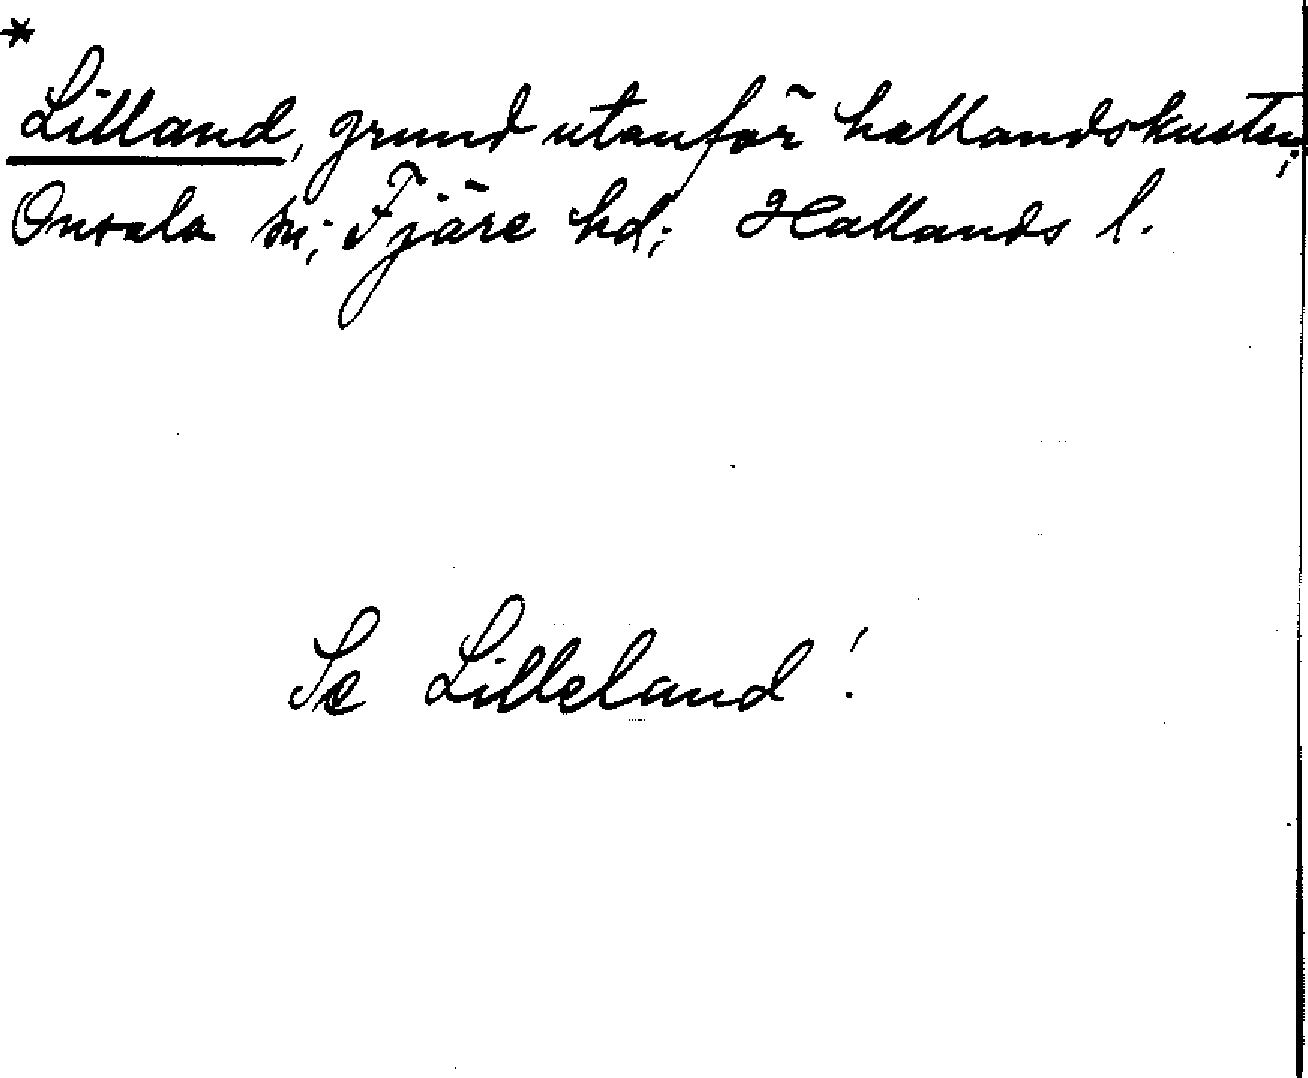 *
Lilland, grund utanför hallandskusten;
Onsala sn; Fjäre hd; Hallands l.
Se Lilleland!